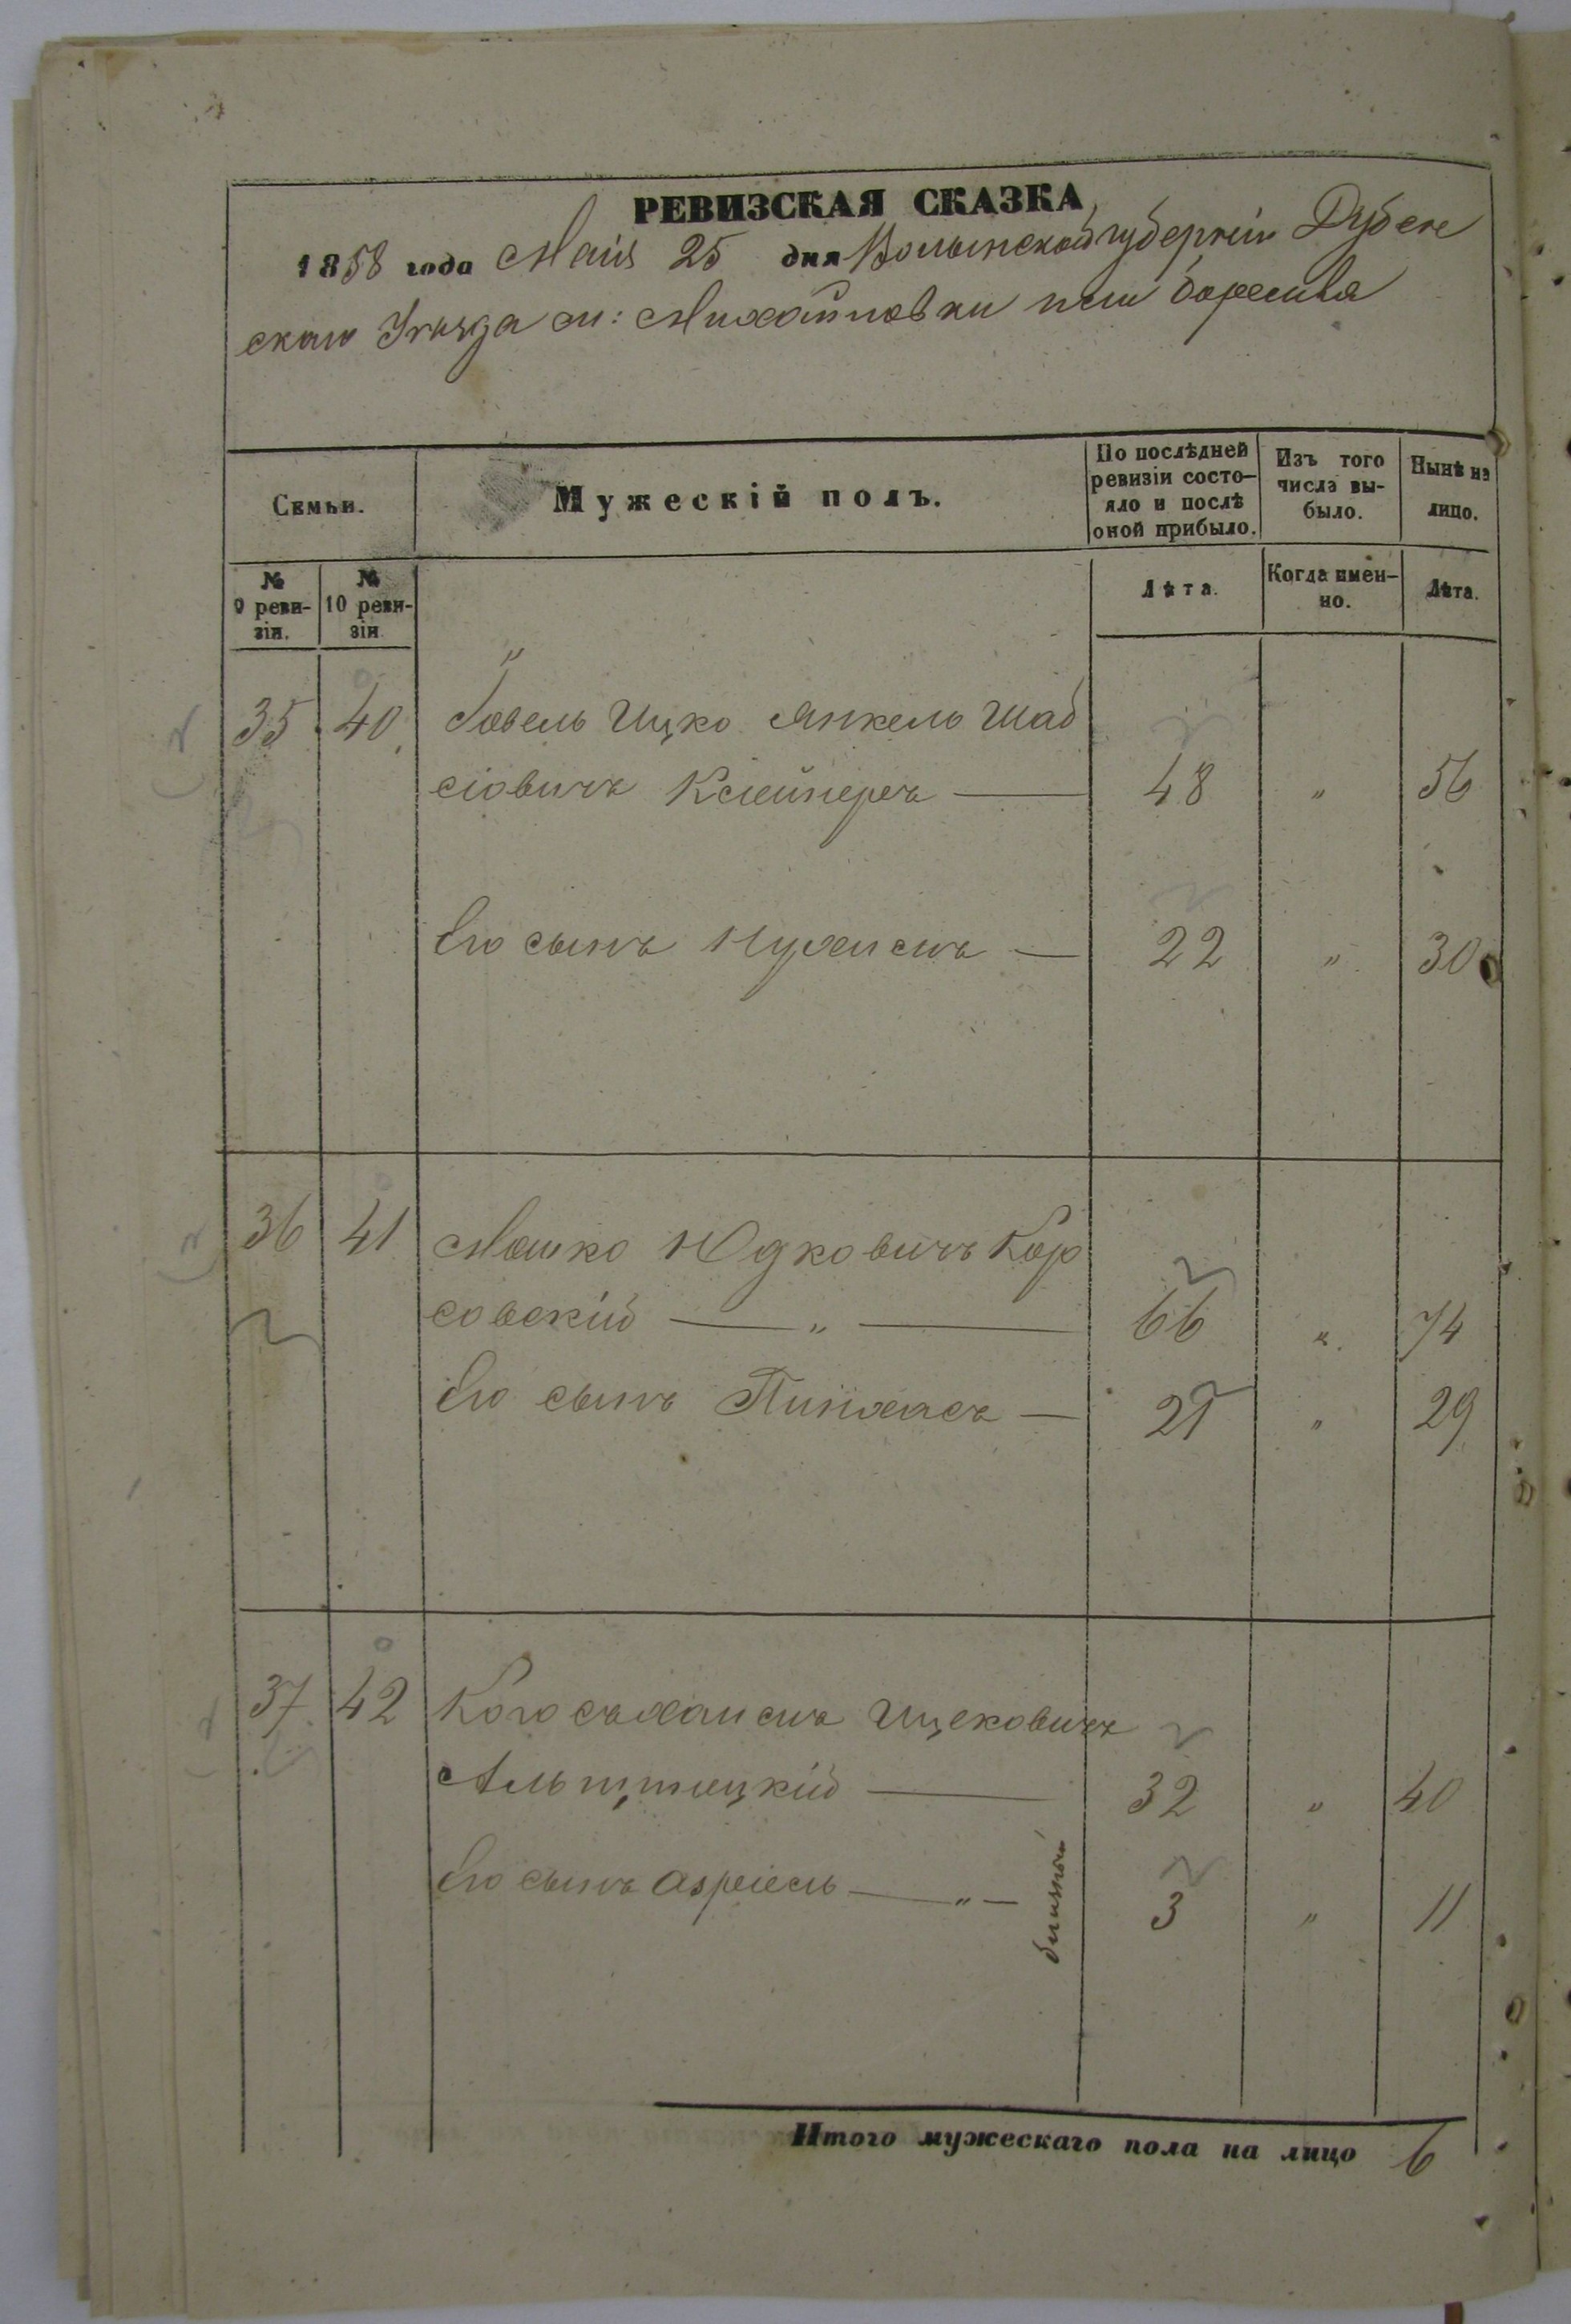 РЕВИЗСКАЯ СКАЗКА
1858 года Маія 25 дня Волынской губерніи Дубен
скаго Уѣзда м: Михайловки или Боремля
Семьи.
Мужескій полъ.
По послѣдней
ревизіи состо-
яло и послѣ
оной прибыло.
Изъ того
числа вы-
было.
Нынѣ на
лицо.
№
9 реви-
зіи.
№
10 реви-
зіи
Лѣта.
Когда имен-
но.
Лѣта.
35 40 Говель Ицко Янкель Шаб
сіовичъ Клейнеръ — 48 " 56
Его сынъ Нухимъ — 22 " 30
36 41 Мошко Юдковичъ Кор
совскій — " — 66 " 74
Его сынъ Пинхасъ — 21 " 29
37 42 Ицковичъ
32 " 40
Его сынъ Азріель — " — 3 " 11
Итого мужескаго пола на лицо 6